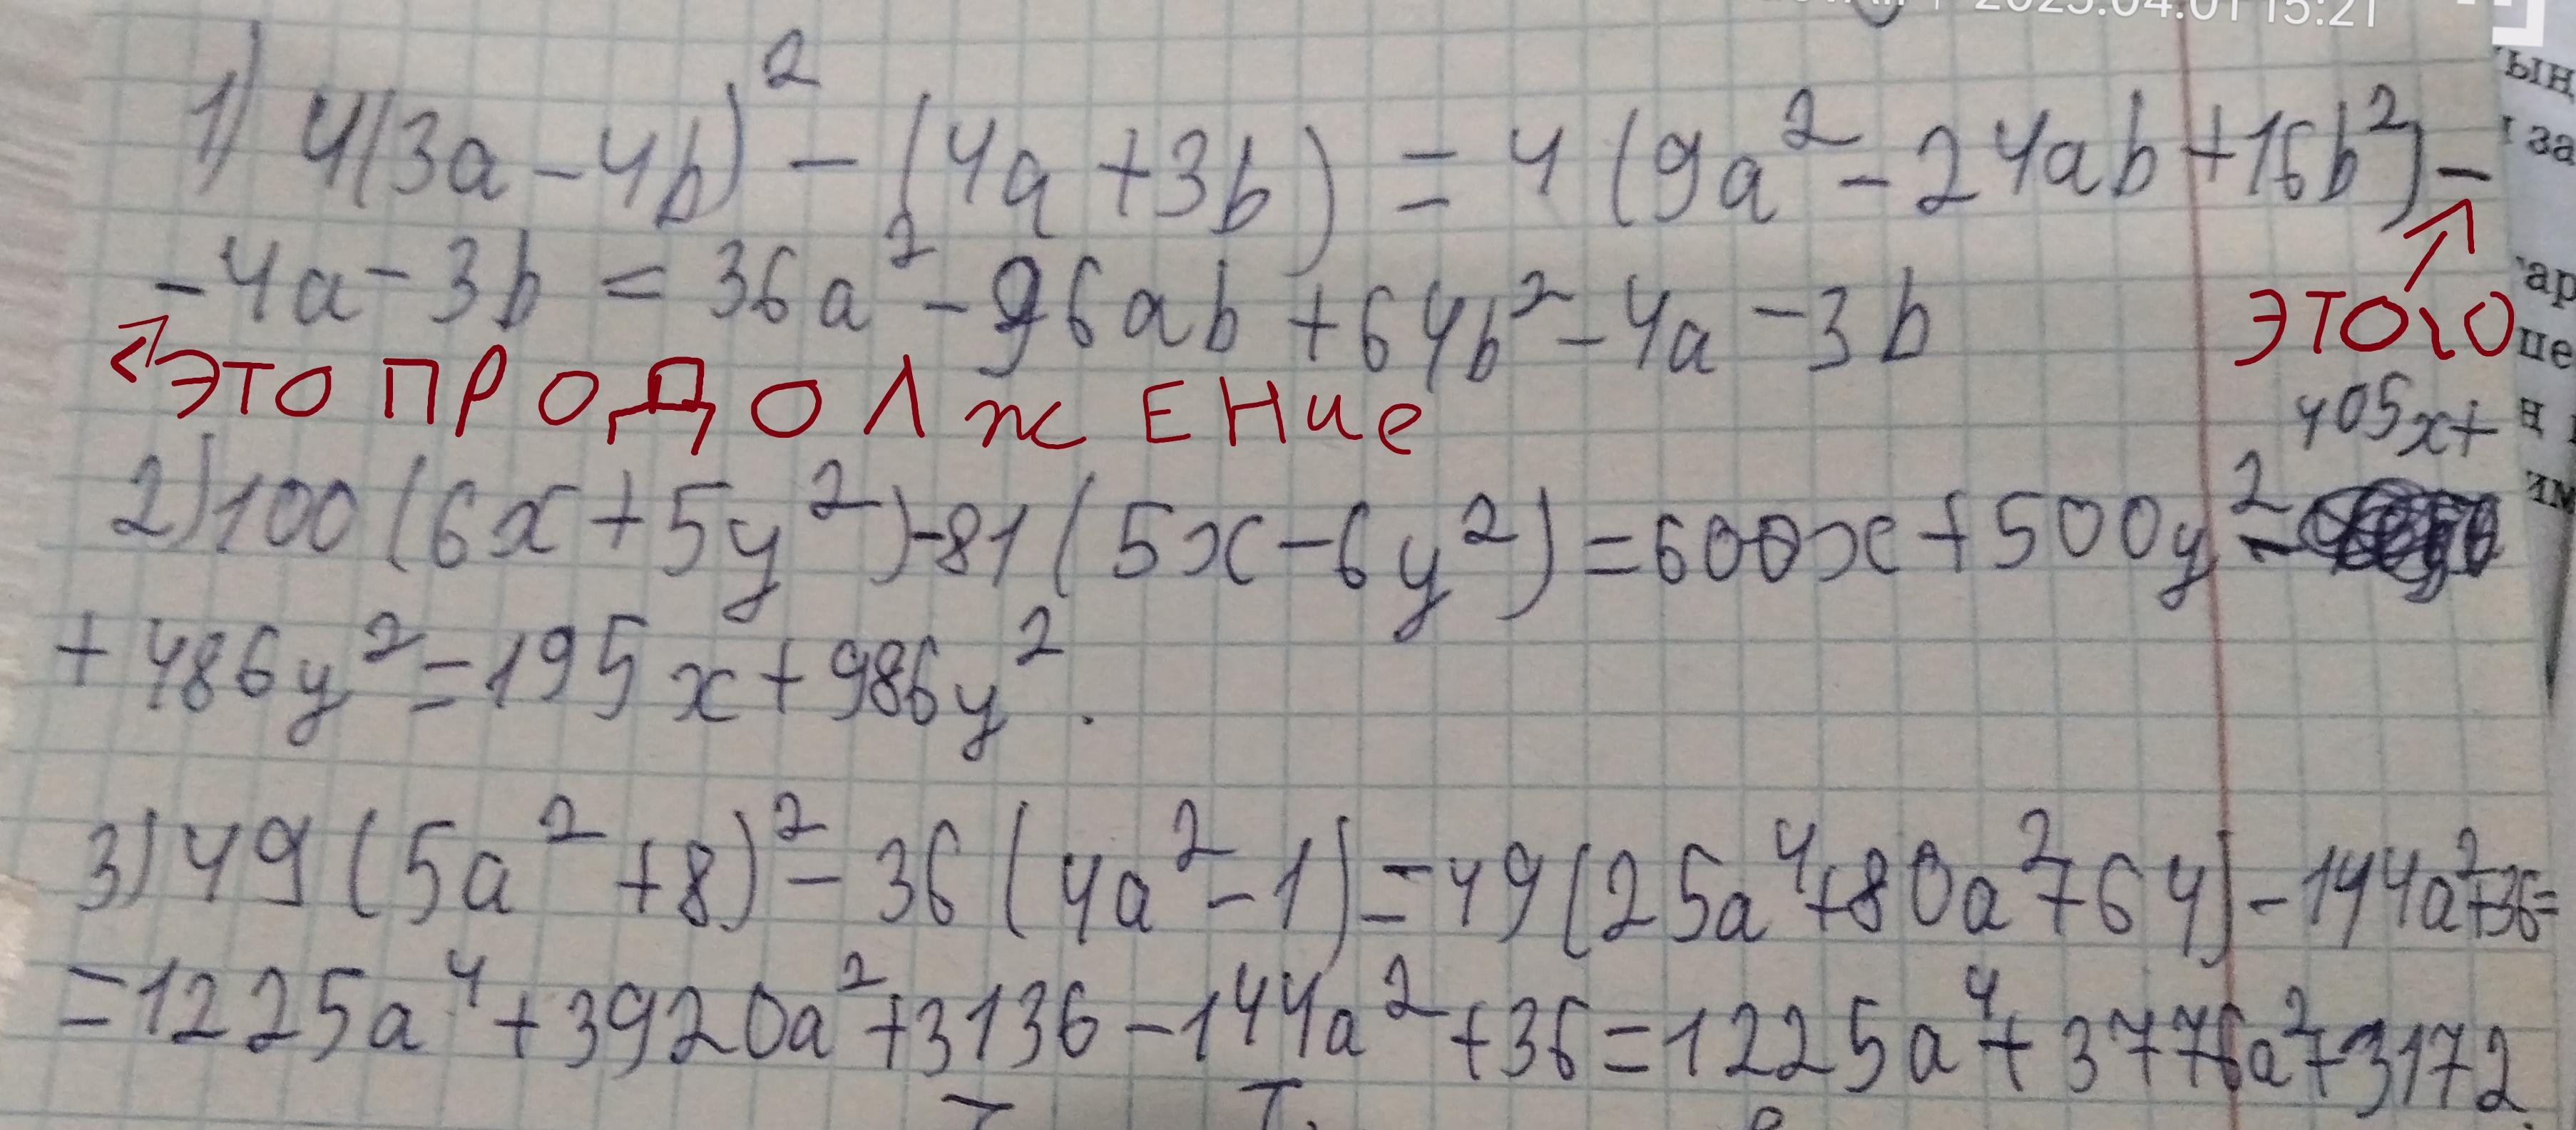 2025.04.01 15:21
1) 4(3a-4b)² - (4a+3b) = 4(9a²-24ab+16b²)-
-4a-3b = 36a²-96ab+64b²-4a-3b
ЭТОГО
ЭТО ПРОДОЛЖЕНИЕ
405x+
2) 100(6x+5y²)-81(5x-6y²)=600x+500y²-
+486y²=195x+986y².
3) 49(5a²+8)²-36(4a²-1)=49(25a⁴+80a²+64)-144a²+36=
=1225a⁴+3920a²+3136-144a²+36=1225a⁴+3776a²+3172